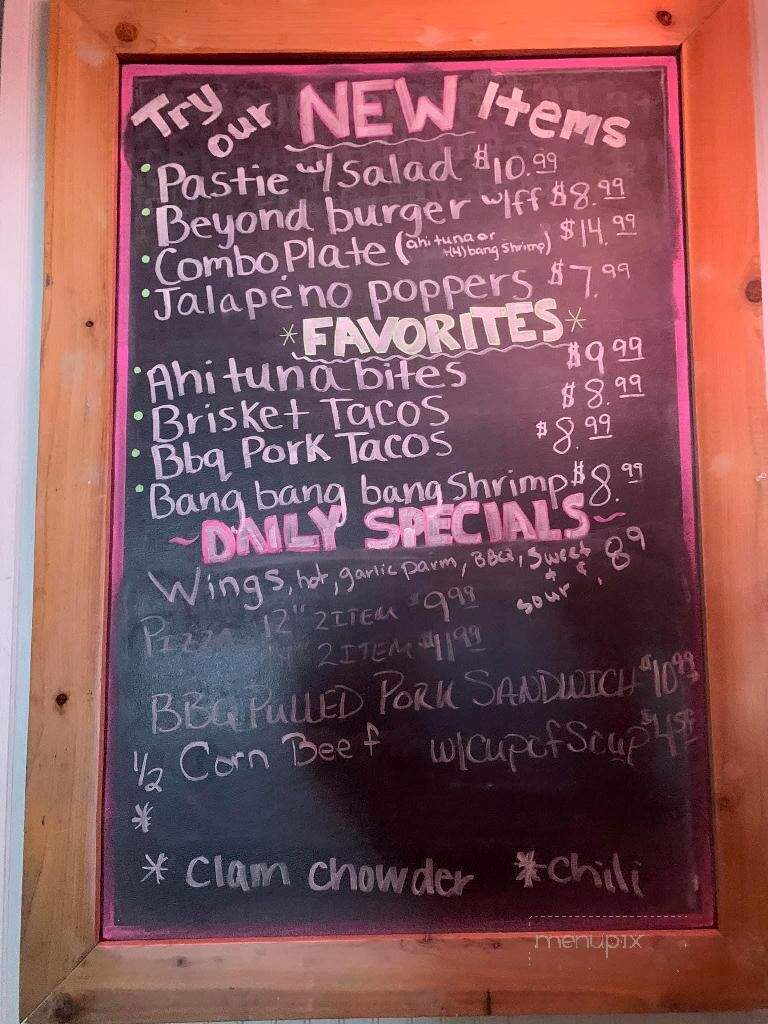 Try our NEW Items
• Pastie w/ Salad $10.99
• Beyond burger w/ff $8.99
• Combo Plate (ahi tuna or (4) bang Shrimp) $14.99
• Jalapeño poppers $7.99
*FAVORITES*
• Ahi tuna bites $9.99
• Brisket Tacos $8.99
• Bbq Pork Tacos $8.99
• Bang bang bang Shrimp $8.99
~DAILY SPECIALS~
Wings, hot, garlic parm, BBQ, Sweet + sour
PIZZA 12" 2 ITEM $9.99
2 ITEM $11.99
BBQ PULLED PORK SANDWICH $10.99
1/2 Corn Beef w/cup of Soup
*
* Clam Chowder *Chili
menupix